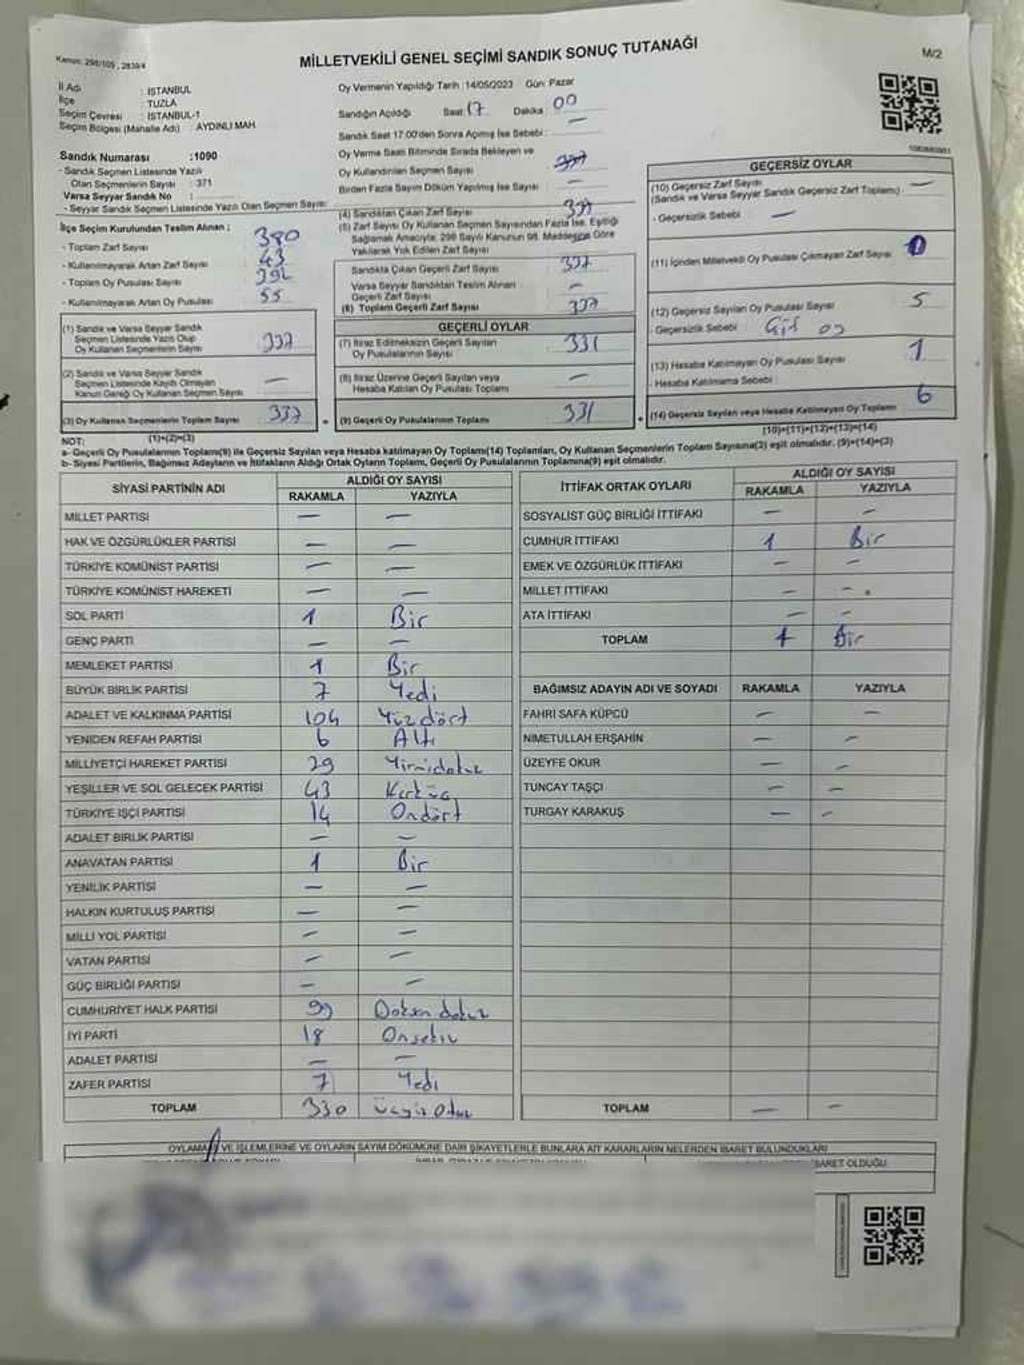 Kanun: 298/105, 2839/4
MİLLETVEKİLİ GENEL SEÇİMİ SANDIK SONUÇ TUTANAĞI
M/2
İl Adı : İSTANBUL
İlçe : TUZLA
Seçim Çevresi : İSTANBUL-1
Seçim Bölgesi (Mahalle Adı) : AYDINLI MAH
Sandık Numarası :1090
- Sandık Seçmen Listesinde Yazılı
Olan Seçmenlerin Sayısı : 371
Varsa Seyyar Sandık No :
- Seyyar Sandık Seçmen Listesinde Yazılı Olan Seçmen Sayısı:
İlçe Seçim Kurulundan Teslim Alınan ;
- Toplam Zarf Sayısı 380
- Kullanılmayarak Artan Zarf Sayısı 43
- Toplam Oy Pusulası Sayısı 392
- Kullanılmayarak Artan Oy Pusulası 55
(1) Sandık ve Varsa Seyyar Sandık
Seçmen Listesinde Yazılı Olup
Oy Kullanan Seçmenlerin Sayısı 337
(2) Sandık ve Varsa Seyyar Sandık
Seçmen Listesinde Kayıtlı Olmayan
Kanun Gereği Oy Kullanan Seçmen Sayısı —
(3) Oy Kullanan Seçmenlerin Toplam Sayısı 337
(1)+(2)=(3)
Oy Vermenin Yapıldığı Tarih :14/05/2023 Gün: Pazar
Sandığın Açıldığı Saat 17 Dakika 00
Sandık Saat 17.00'den Sonra Açılmış İse Sebebi : —
Oy Verme Saati Bitiminde Sırada Bekleyen ve
Oy Kullandırılan Seçmen Sayısı
Birden Fazla Sayım Döküm Yapılmış İse Sayısı —
(4) Sandıktan Çıkan Zarf Sayısı 337
(5) Zarf Sayısı Oy Kullanan Seçmen Sayısından Fazla İse, Eşitliği
Sağlamak Amacıyla, 298 Sayılı Kanunun 98. Maddesine Göre
Yakılarak Yok Edilen Zarf Sayısı
Sandıkta Çıkan Geçerli Zarf Sayısı 337
Varsa Seyyar Sandıktan Teslim Alınan
Geçerli Zarf Sayısı —
(6) Toplam Geçerli Zarf Sayısı 337
GEÇERLİ OYLAR
(7) İtiraz Edilmeksizin Geçerli Sayılan
Oy Pusulalarının Sayısı 331
(8) İtiraz Üzerine Geçerli Sayılan veya
Hesaba Katılan Oy Pusulası Toplamı —
(9) Geçerli Oy Pusulalarının Toplamı 331
GEÇERSİZ OYLAR
(10) Geçersiz Zarf Sayısı —
(Sandık ve Varsa Seyyar Sandık Geçersiz Zarf Toplamı)
- Geçersizlik Sebebi : —
(11) İçinden Milletvekili Oy Pusulası Çıkmayan Zarf Sayısı
(12) Geçersiz Sayılan Oy Pusulası Sayısı 5
- Geçersizlik Sebebi : Çift oy
(13) Hesaba Katılmayan Oy Pusulası Sayısı 1
- Hesaba Katılmama Sebebi :
(14) Geçersiz Sayılan veya Hesaba Katılmayan Oy Toplamı 6
(10)+(11)+(12)+(13)=(14)
NOT:
a- Geçerli Oy Pusulalarının Toplamı(9) ile Geçersiz Sayılan veya Hesaba katılmayan Oy Toplamı(14) Toplamları, Oy Kullanan Seçmenlerin Toplam Sayısına(3) eşit olmalıdır. (9)+(14)=(3)
b- Siyasi Partilerin, Bağımsız Adayların ve İttifakların Aldığı Ortak Oyların Toplamı, Geçerli Oy Pusulalarının Toplamına(9) eşit olmalıdır.
SİYASİ PARTİNİN ADI ALDIĞI OY SAYISI
RAKAMLA YAZIYLA
MİLLET PARTİSİ — —
HAK VE ÖZGÜRLÜKLER PARTİSİ — —
TÜRKİYE KOMÜNİST PARTİSİ — —
TÜRKİYE KOMÜNİST HAREKETİ — —
SOL PARTİ 1 Bir
GENÇ PARTİ — —
MEMLEKET PARTİSİ 1 Bir
BÜYÜK BİRLİK PARTİSİ 7 Yedi
ADALET VE KALKINMA PARTİSİ 104 Yüzdört
YENİDEN REFAH PARTİSİ 6 Altı
MİLLİYETÇİ HAREKET PARTİSİ 29 Yirmidokuz
YEŞİLLER VE SOL GELECEK PARTİSİ 43 Kırküç
TÜRKİYE İŞÇİ PARTİSİ 14 Ondört
ADALET BİRLİK PARTİSİ — —
ANAVATAN PARTİSİ 1 Bir
YENİLİK PARTİSİ — —
HALKIN KURTULUŞ PARTİSİ — —
MİLLİ YOL PARTİSİ — —
VATAN PARTİSİ — —
GÜÇ BİRLİĞİ PARTİSİ — —
CUMHURİYET HALK PARTİSİ 99 Doksan dokuz
İYİ PARTİ 18 Onsekiz
ADALET PARTİSİ — —
ZAFER PARTİSİ 7 Yedi
TOPLAM 330 Üçyüz Otuz
İTTİFAK ORTAK OYLARI ALDIĞI OY SAYISI
RAKAMLA YAZIYLA
SOSYALİST GÜÇ BİRLİĞİ İTTİFAKI — —
CUMHUR İTTİFAKI 1 Bir
EMEK VE ÖZGÜRLÜK İTTİFAKI — —
MİLLET İTTİFAKI — —
ATA İTTİFAKI — —
TOPLAM 1 Bir
BAĞIMSIZ ADAYIN ADI VE SOYADI RAKAMLA YAZIYLA
FAHRİ SAFA KÜPCÜ — —
NİMETULLAH ERŞAHİN — —
ÜZEYFE OKUR — —
TUNCAY TAŞÇI — —
TURGAY KARAKUŞ — —
TOPLAM — —
OYLAMA VE İŞLEMLERİNE VE OYLARIN SAYIM DÖKÜMÜNE DAİR ŞİKAYETLERLE BUNLARA AİT KARARLARIN NELERDEN İBARET BULUNDUKLARI